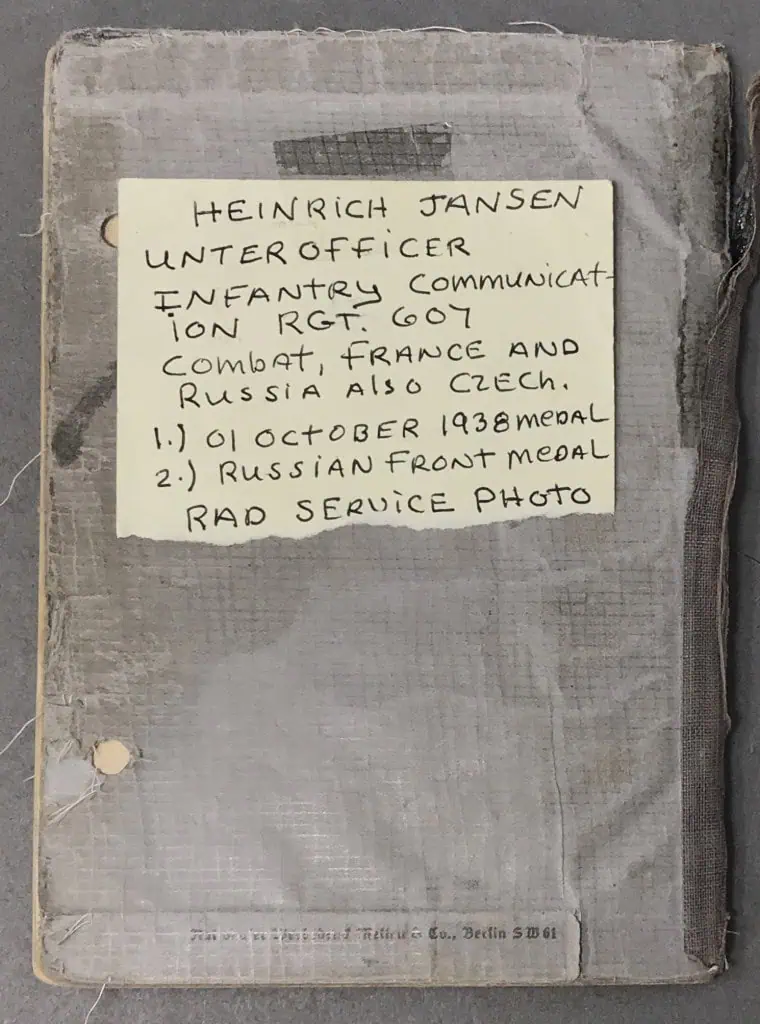 HEINRICH JANSEN
UNTEROFFICER
INFANTRY COMMUNICAT-
ION RGT. 607
COMBAT, FRANCE AND
RUSSIA ALSO CZECH.
1.) 01 OCTOBER 1938 MEDAL
2.) RUSSIAN FRONT MEDAL
RAD SERVICE PHOTO
& Co., Berlin SW 61